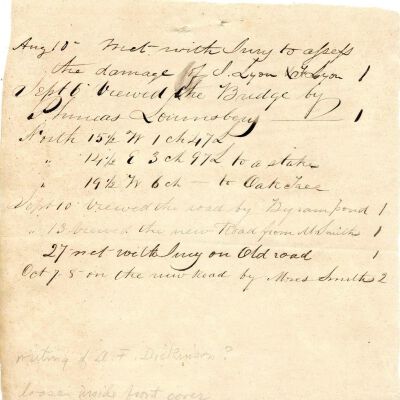 Aug 10 Met with Jury to assess
the damage of J. Lyon & F Lyon 1
Sept 6 Viewed the Bridge by
Phineas Lounsbery 1
North 15½ W 1 ch 47 L
" 14½ E 3 ch 97 L to a stake
" 19½ W 6 ch — to Oak Tree
Sept 10 Viewed the road by Byram pond 1
" 13 viewed the new Road from M Smith 1
27 met with Jury on Old road 1
Oct 7-8 on the new Road by Smith 2
writing of A. F. Dickinson?
loose inside front cover